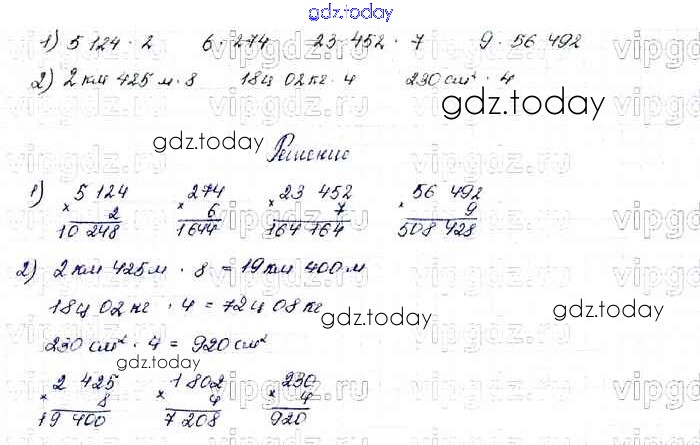 gdz.today
1) 5 124 · 2 6 · 274 23 452 · 7 9 · 56 492
2) 2 км 425 м · 8 18ц 02кг · 4 230 см² · 4
gdz.today
gdz.today
Решение
1) 5 124 274 23 452 56 492
× 2 × 6 × 7 × 9
10 248 1644 164 164 508 428
2) 2 км 425 м · 8 = 19 км 400 м
18ц 02 кг · 4 = 72 ц 08 кг
gdz.today
230 см² · 4 = 920 см²
gdz.today
2 425 1 802 230
× 8 × 4 × 4
19 400 7 208 920
vipgdz.ru